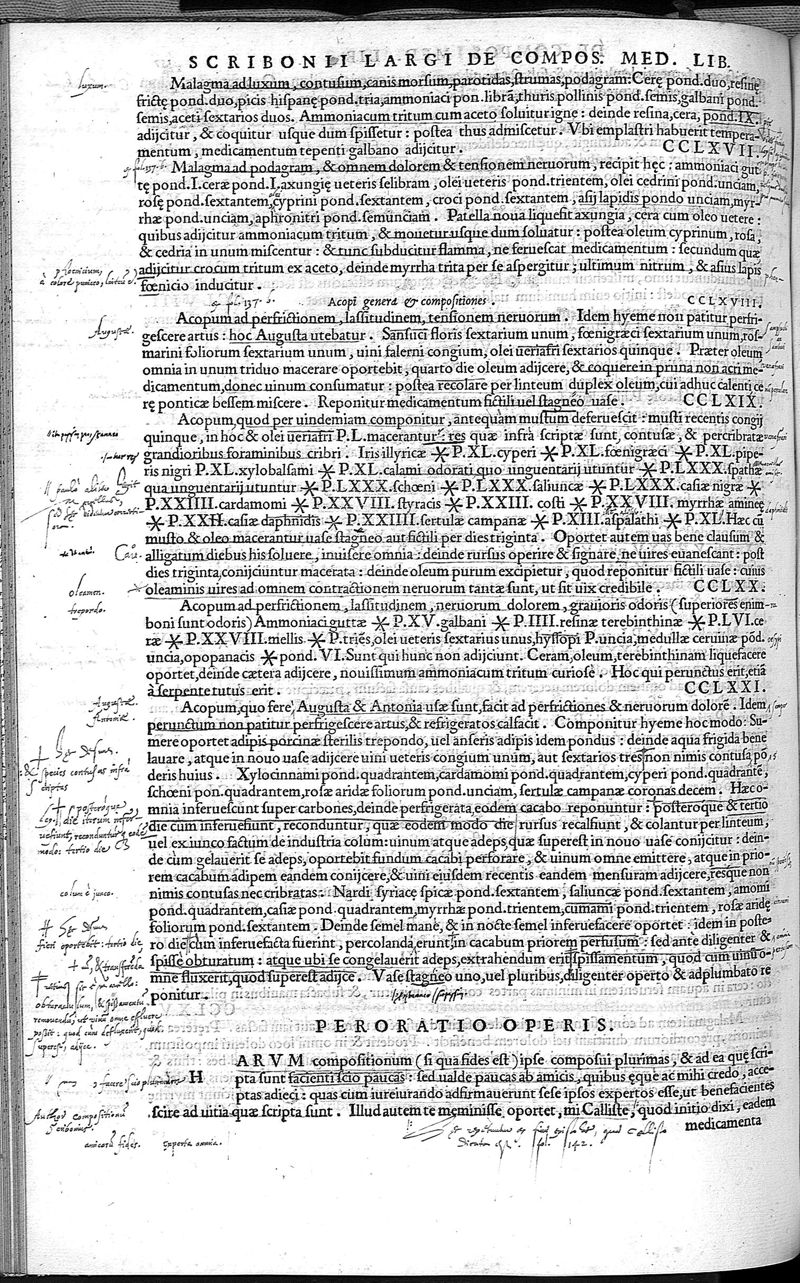 SCRIBONII LARGI DE COMPOS. MED. LIB.
Malagma ad luxum, contusum, canis morsum, parotidas, strumas, podagram: Cerę pond. duo, resinę
frictę pond. duo, picis hispanę pond. tria, ammoniaci pon. librā, thuris pollinis pond. semis, galbani pond.
semis, aceti sextarios duos. Ammoniacum tritum cum aceto soluitur igne: deinde resina, cera, pond. IX.
adijcitur, & coquitur usque dum spissetur: postea thus admiscetur. Vbi emplastri habuerit tempera-
mentum, medicamentum tepenti galbano adijcitur. CCLXVII.
Malagma ad podagram, & omnem dolorem & tensionem neruorum, recipit hęc: ammoniaci gut
tę pond. I. ceræ pond. I. axungię ueteris selibram, olei ueteris pond. trientem, olei cedrini pond. unciam,
rosę pond. sextantem, cyprini pond. sextantem, croci pond. sextantem, asij lapidis pondo unciam, myr-
rhæ pond. unciam, aphronitri pond. semunciam. Patella noua liquefit axungia, cera cum oleo uetere:
quibus adijcitur ammoniacum tritum, & mouetur usque dum soluatur: postea oleum cyprinum, rosa,
& cedria in unum miscentur: & tunc subducitur flamma, ne feruescat medicamentum: secundum quæ
adijcitur crocum tritum ex aceto, deinde myrrha trita per se aspergitur; ultimum nitrum, & asius lapis
fœnicio inducitur.
Acopi genera & compositiones. CCLXVIII.
Acopum ad perfrictionem, lassitudinem, tensionem neruorum. Idem hyeme non patitur perfri-
gescere artus: hoc Augusta utebatur. Sansuci floris sextarium unum, fœnigræci sextarium unum, ros-
marini foliorum sextarium unum, uini falerni congium, olei ueriafri sextarios quinque. Præter oleum
omnia in unum triduo macerare oportebit, quarto die oleum adijcere, & coquere in pruna non acri me-
dicamentum, donec uinum consumatur: postea recolare per linteum duplex oleum, cui adhuc calenti ce
rę ponticæ bessem miscere. Reponitur medicamentum fictili uel stagneo uase. CCLXIX.
Acopum, quod per uindemiam componitur, antequàm mustum deferuescit: musti recentis congij
quinque, in hoc & olei ueriafri P. L. macerantur: res quæ infrà scriptæ sunt, contusæ, & percribratæ
grandioribus foraminibus cribri. Iris illyricæ ✳ P. XL. cyperi ✳ P. XL. fœnigræci ✳ P. XL. pipe-
ris nigri P. XL. xylobalsami ✳ P. XL. calami odorati quo unguentarij utuntur ✳ P. LXXX. spathæ
qua unguentarij utuntur ✳ P. LXXX. schœni ✳ P. LXXX. saliuncæ ✳ P. LXXX. casiæ nigræ ✳
P. XXIIII. cardamomi ✳ P. XXVIII. styracis ✳ P. XXIII. costi ✳ P. XXVIII. myrrhæ amineę
✳ P. XXII. casiæ daphnidis ✳ P. XXIIII. sertulæ campanæ ✳ P. XIII. aspalathi ✳ P. XL. Hæc cū
musto & oleo macerantur uase stagneo aut fictili per dies triginta. Oportet autem uas bene clausum &
alligatum diebus his soluere, inuisere omnia: deinde rursus operire & signare, ne uires euanescant: post
dies triginta, conijciuntur macerata: deinde oleum purum excipietur, quod reponitur fictili uase: cuius
oleaminis uires ad omnem contractionem neruorum tantæ sunt, ut sit uix credibile. CCLXX.
Acopum ad perfrictionem, lassitudinem, neruorum dolorem, grauioris odoris (superiores enim
boni sunt odoris) Ammoniaci guttæ ✳ P. XV. galbani ✳ P. IIII. resinæ terebinthinæ ✳ P. LVI. ce
ræ ✳ P. XXVIII. mellis ✳ P. triēs, olei ueteris sextarius unus, hyssopi P. uncia, medullæ ceruinæ pōd.
uncia, opopanacis ✳ pond. VI. Sunt qui hunc non adijciunt. Ceram, oleum, terebinthinam liquefacere
oportet, deinde cætera adijcere, nouissimum ammoniacum tritum curiosè. Hoc qui perunctus erit, etiā
à serpente tutus erit. CCLXXI.
Acopum, quo ferè Augusta & Antonia usæ sunt, facit ad perfrictiones & neruorum dolorē. Idem
perunctum non patitur perfrigescere artus, & refrigeratos calfacit. Componitur hyeme hoc modo: Su-
mere oportet adipis porcinæ sterilis trepondo, uel anseris adipis idem pondus: deinde aqua frigida bene
lauare, atque in nouo uase adijcere uini ueteris congium unum, aut sextarios tres non nimis contusa pō
deris huius. Xylocinnami pond. quadrantem, cardamomi pond. quadrantem, cyperi pond. quadrantē,
schœni pon. quadrantem, rosæ aridæ foliorum pond. unciam, sertulæ campanæ coronas decem. Hæc o-
mnia inferuescunt super carbones, deinde perfrigerata, eodem cacabo reponuntur: posteroque & tertio
die cùm inferuefiunt, reconduntur, quæ eodem modo die rursus recalfiunt, & colantur per linteum,
uel ex iunco factum de industria colum: uinum atque adeps, quæ superest in nouo uase conijcitur: dein-
de cùm gelauerit se adeps, oportebit fundum cacabi perforare, & uinum omne emittere, atque in prio-
rem cacabum adipem eandem conijcere, & uini eiusdem recentis eandem mensuram adijcere, resque non
nimis contusas nec cribratas: Nardi syriacę spicæ pond. sextantem, saliuncæ pond. sextantem, amomi
pond. quadrantem, casiæ pond. quadrantem, myrrhæ pond. trientem, cumami pond. trientem, rosæ aridę
foliorum pond. sextantem. Deinde semel manè, & in nocte semel inferuefacere oportet: idem in poste-
ro die: cum inferuefacta fuerint, percolanda erunt in cacabum priorem perfusum: sed ante diligenter &
spissè obturatum: atque ubi se congelauerit adeps, extrahendum erit spissamentum, quod cum uinum o-
mne fluxerit, quod superest adijce. Vase stagneo uno, uel pluribus, diligenter operto & adplumbato re
ponitur.
PERORATIO OPERIS.
HARVM compositionum (si qua fides est) ipse composui plurimas, & ad ea quę scri-
pta sunt facienti scio paucas: sed ualde paucas ab amicis, quibus ęque ac mihi credo, acce-
ptas adieci: quas cum iureiurando adfirmauerunt sese ipsos expertos esse, ut benefacientes
scire ad uitia quæ scripta sunt. Illud autem te meminisse oportet, mi Calliste, quod initio dixi, eadem
medicamenta
luxum.
Augusta.
oleamen.
trepondo.
Augusta.
Antonia.
colum è junco.
amicorū fides. experta omnia.